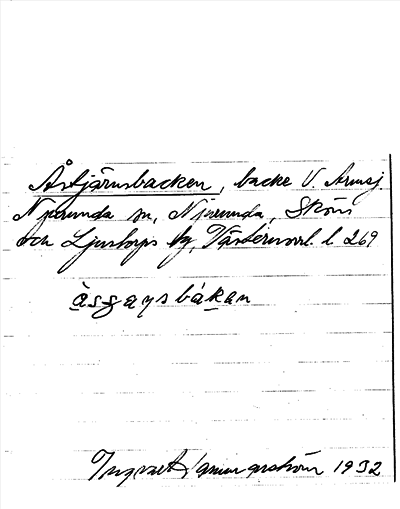 Åstjärnsbacken, backe V. Armsj.
Njurunda sn, Njurunda, Sköns
och Ljustorps tg, Västernorrl. l. 269
àsgaysbákan
Ingvar Hammarström 1932